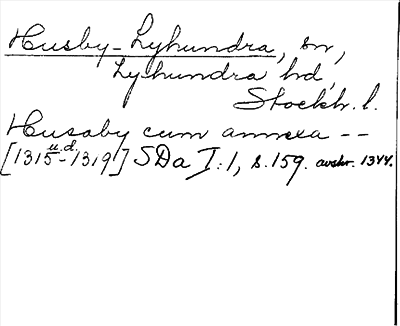 Husby-Lyhundra, sn,
Lyhundra hd,
Stockh. l.
Husaby cum annexa --
[1315 u.d. -1319] SDa I:1, s. 159. avskr. 1344.